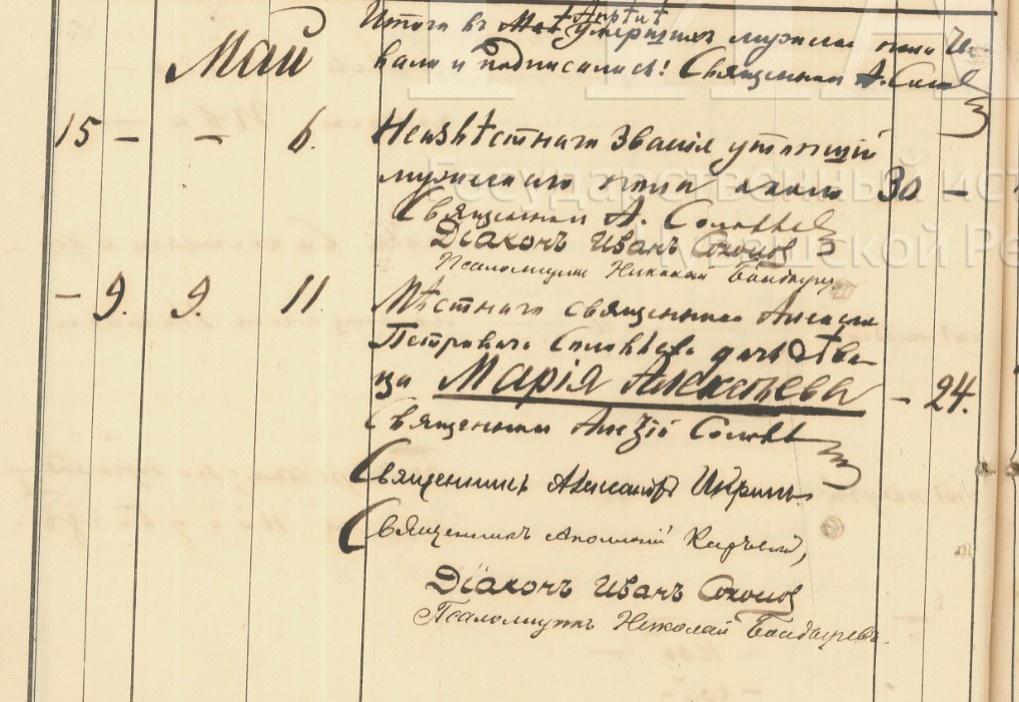 Итого въ Апрѣлѣ умершихъ мужска пола
Май вали и подписались! Священникъ А.
15 — — 6. Неизвѣстнаго званія утопшій
мужескаго пола около 30 —
Священникъ А. Соловьев
Діаконъ Иванъ Соколов
Псаломщикъ Николай
— 9. 9. 11. Мѣстнаго священника Алексея
Петровича Соловьева дочь дѣви-
ца Марія Алексѣева — 24.
Священникъ Алексій Соловьев
Священникъ Александръ
Священникъ Аполлоній
Діаконъ Иванъ Соколов
Псаломщикъ Николай
Государственный ист
Чувашской Ре